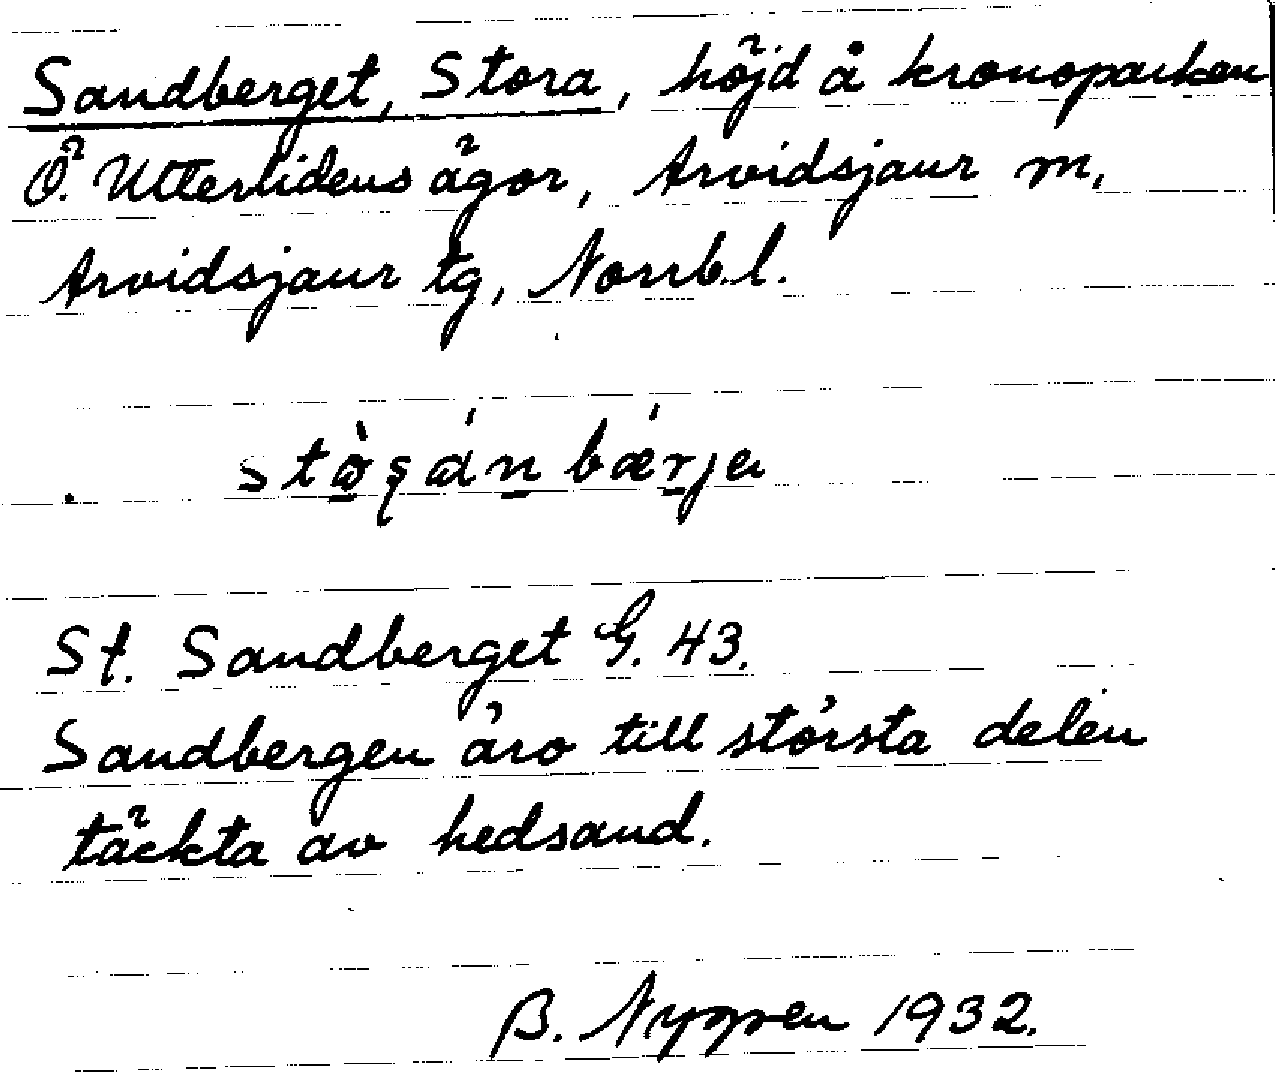 Sandberget, Stora, höjd å kronoparken
Ö. Utterlidens ägor, Arvidsjaur sn,
Arvidsjaur tg, Norrb.l.
St. Sandberget G. 43.
Sandbergen äro till största delen
täckta av hedsand.
B. Nygren 1932.